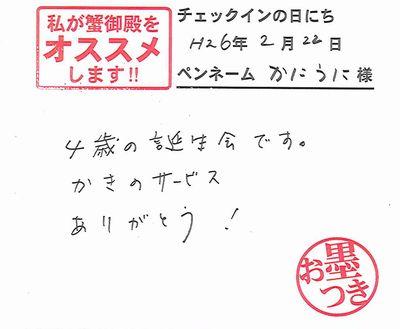 私が蟹御殿を
オススメ
します!!
チェックインの日にち
H26年 2月 22日
ペンネーム かにうに 様
4歳の誕生会です。
かきのサービス
ありがとう!
お墨つき